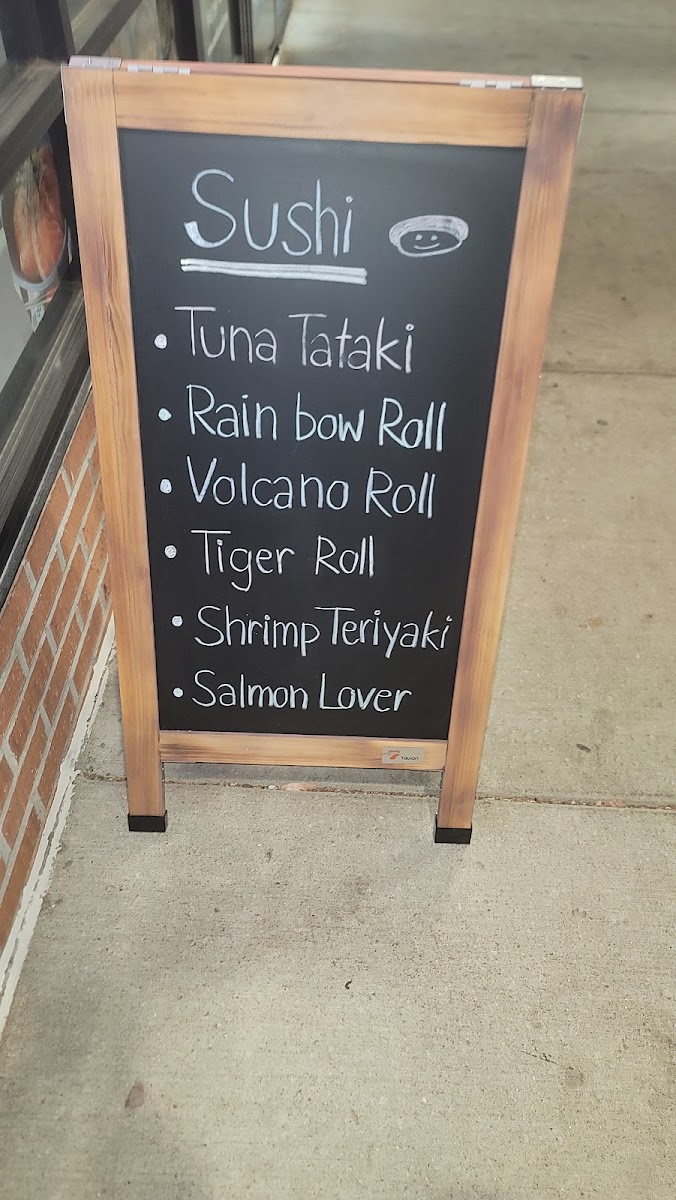 Sushi
• Tuna Tataki
• Rain bow Roll
• Volcano Roll
• Tiger Roll
• Shrimp Teriyaki
• Salmon Lover